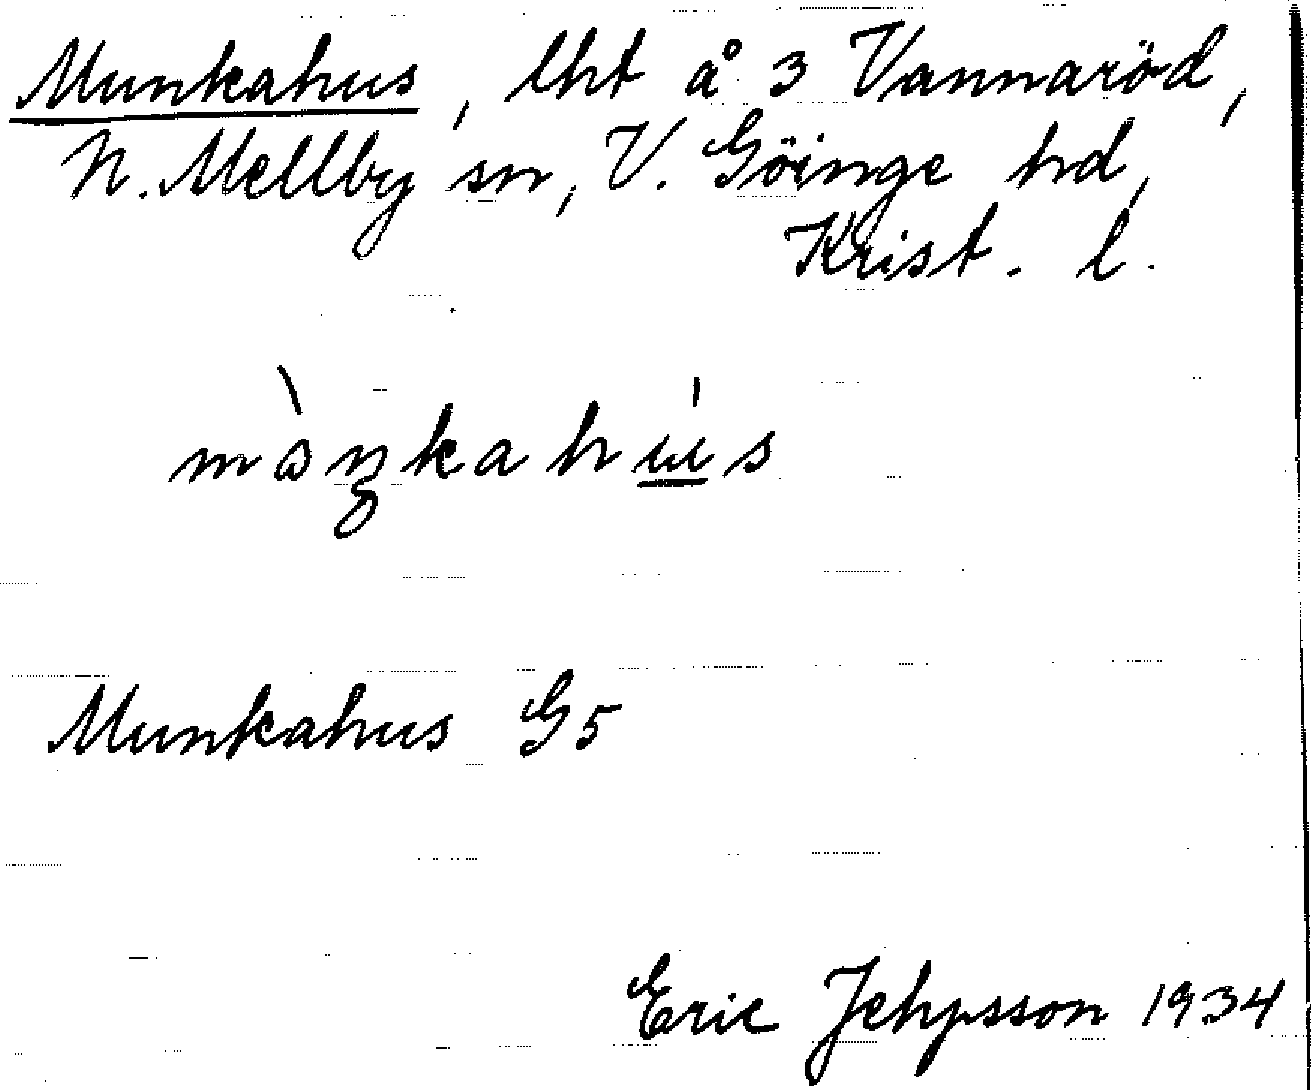 Munkahus, lht å 3 Vannaröd,
N. Mellby sn, V. Göinge hd,
Krist. l.
mòŋkahú̲s
Munkahus G5
Eric Jehpsson 1934